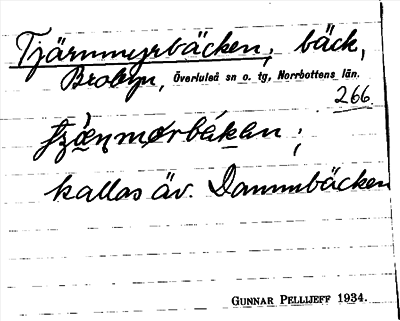 Tjärnmyrbäcken; bäck,
Brobyn, Överluleå sn o. tg, Norrbottens län.
266
kallas äv. Dammbäcken
GUNNAR PELLIJEFF 1934.